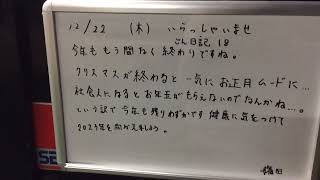 12/22 (木) いらっしゃいませ
ごん日記 18
今年ももう間もなく終わりですね。
クリスマスが終わると一気にお正月ムードに…
社会人になるとお年玉がもらえないのでなんかね…。
という訳で今年も残りわずかです 健康に気をつけて
2023年を向かえましょう。
SE